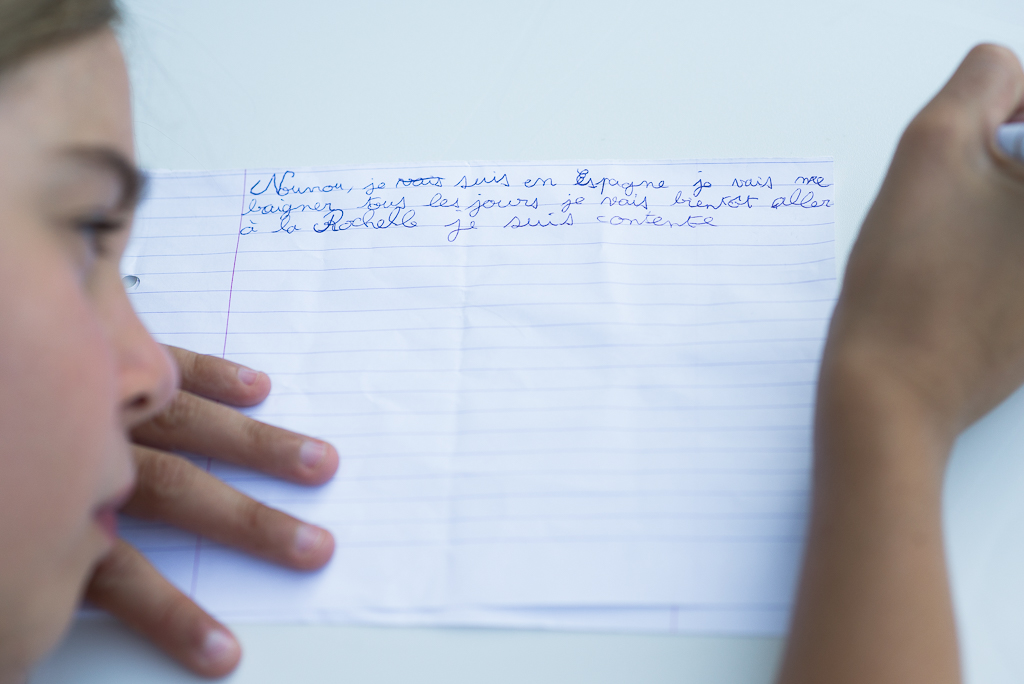 Nounou, je vais suis en Espagne je vais me
baigner tous les jours je vais bientôt aller
à la Rochelle je suis contente